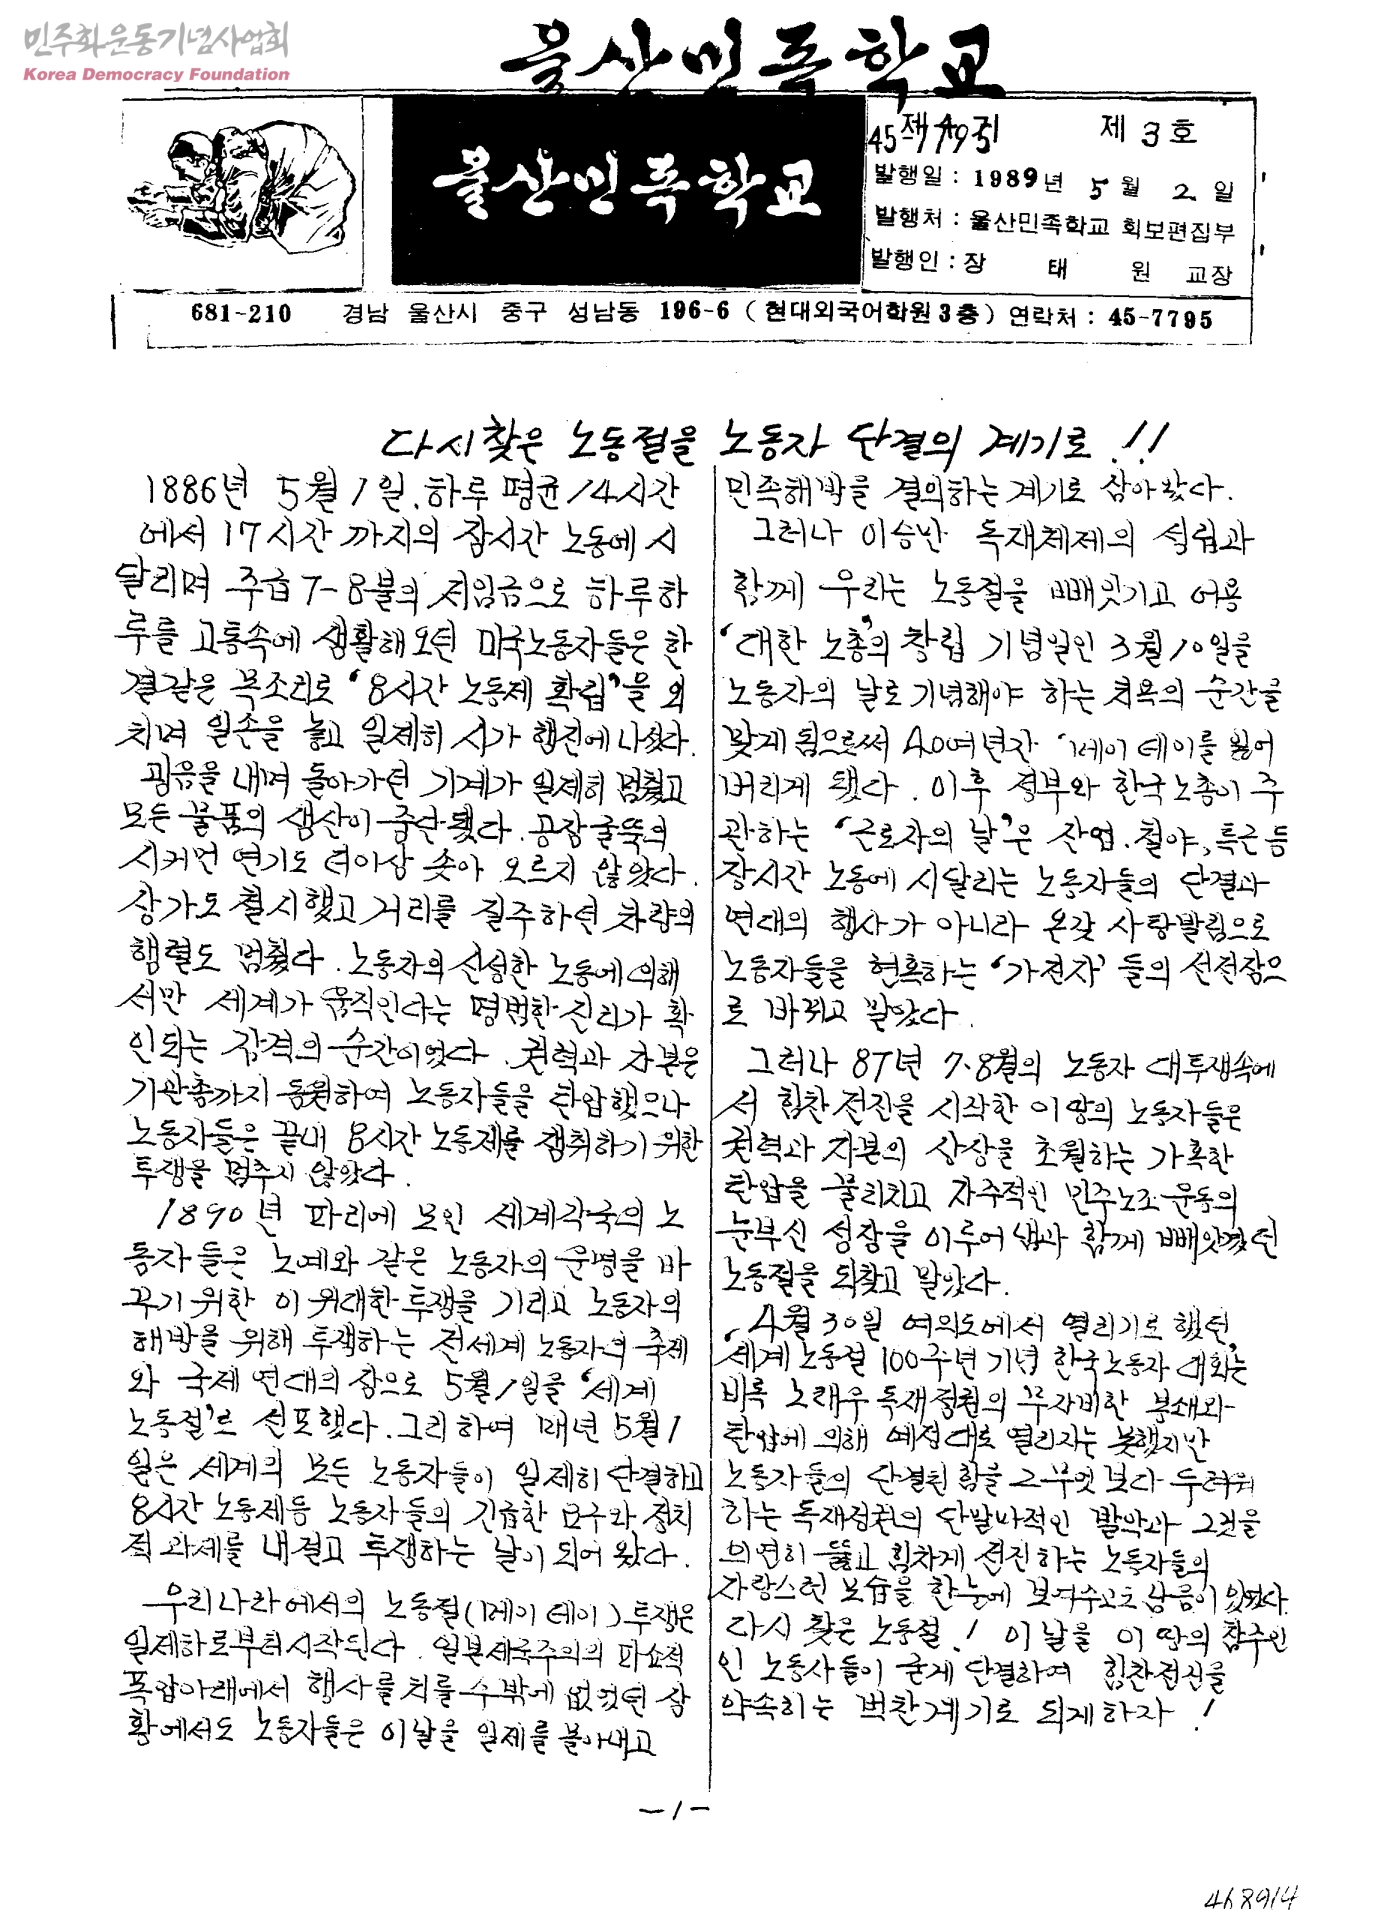 민주화운동기념사업회
Korea Democracy Foundation
울산민족학교
울산민족학교
제 3 호
45-7795
발행일 : 1989년 5월 2일
발행처 : 울산민족학교 회보편집부
발행인 : 장 태 원 교장
681-210 경남 울산시 중구 성남동 196-6 ( 현대외국어학원 3층 ) 연락처 : 45-7795
다시찾은 노동절을 노동자 단결의 계기로 !!
1886년 5월 1일, 하루 평균 14시간
에서 17시간 까지의 장시간 노동에 시
달리며 주급 7-8불의 저임금으로 하루하
루를 고통속에 생활해 오던 미국노동자들은 한
결같은 목소리로 '8시간 노동제 확립'을 외
치며 일손을 놓고 일제히 시가 행진에 나섰다.
굉음을 내며 돌아가던 기계가 일제히 멈췄고
모든 물품의 생산이 중단됐다. 공장굴뚝의
시커먼 연기도 더이상 솟아 오르지 않았다.
상가도 철시했고 거리를 질주하던 차량의
행렬도 멈췄다. 노동자의 신성한 노동에 의해
서만 세계가 움직인다는 평범한 진리가 확
인되는 감격의 순간이었다. 권력과 자본은
기관총까지 동원하여 노동자들을 탄압했으나
노동자들은 끝내 8시간 노동제를 쟁취하기 위한
투쟁을 멈추지 않았다.
1890년 파리에 모인 세계각국의 노
동자들은 노예와 같은 노동자의 운명을 바
꾸기 위한 이 위대한 투쟁을 기리고 노동자의
해방을 위해 투쟁하는 전세계 노동자의 축제
와 국제 연대의 장으로 5월 1일을 '세계
노동절'로 선포했다. 그리하여 매년 5월 1
일은 세계의 모든 노동자들이 일제히 단결하고
8시간 노동제등 노동자들의 긴급한 요구와 정치
적 과제를 내걸고 투쟁하는 날이 되어 왔다.
우리나라에서의 노동절(메이데이) 투쟁은
일제하로부터 시작된다. 일본제국주의의 파쇼적
폭압아래에서 행사를 치를수밖에 없었던 상
황에서도 노동자들은 이날을 일제를 몰아내고
민족해방을 결의하는 계기로 삼아왔다.
그러나 이승만 독재체제의 설립과
함께 우리는 노동절을 빼앗기고 어용
'대한 노총'의 창립 기념일인 3월 10일을
노동자의 날로 기념해야 하는 치욕의 순간을
맞게 됨으로써 40여년간 '메이데이'를 잃어
버리게 됐다. 이후 정부와 한국노총이 주
관하는 '근로자의 날'은 잔업, 철야, 특근 등
장시간 노동에 시달리는 노동자들의 단결과
연대의 행사가 아니라 온갖 사탕발림으로
노동자들을 현혹하는 '가진자' 들의 선전장으
로 바뀌고 말았다.
그러나 87년 7.8월의 노동자 대투쟁속에
서 힘찬 전진을 시작한 이땅의 노동자들은
권력과 자본의 상상을 초월하는 가혹한
탄압을 물리치고 자주적인 민주노조 운동의
눈부신 성장을 이루어 냄과 함께 빼앗겼던
노동절을 되찾고 말았다.
4월 30일 여의도에서 열리기로 했던
'세계노동절 100주년 기념 한국노동자 대회'는
비록 노태우 독재정권의 무자비한 봉쇄와
탄압에 의해 예정대로 열리지는 못했지만
노동자들의 단결된 힘을 그 무엇 보다 두려워
하는 독재정권의 단말마적인 발악과 그것을
의연히 뚫고 힘차게 전진하는 노동자들의
자랑스런 모습을 한눈에 보여주고도 남음이 있었다.
다시 찾은 노동절! 이날을 이 땅의 참주인
인 노동자들이 굳게 단결하여 힘찬전진을
약속하는 벅찬계기로 되게하자!
-1-
468914